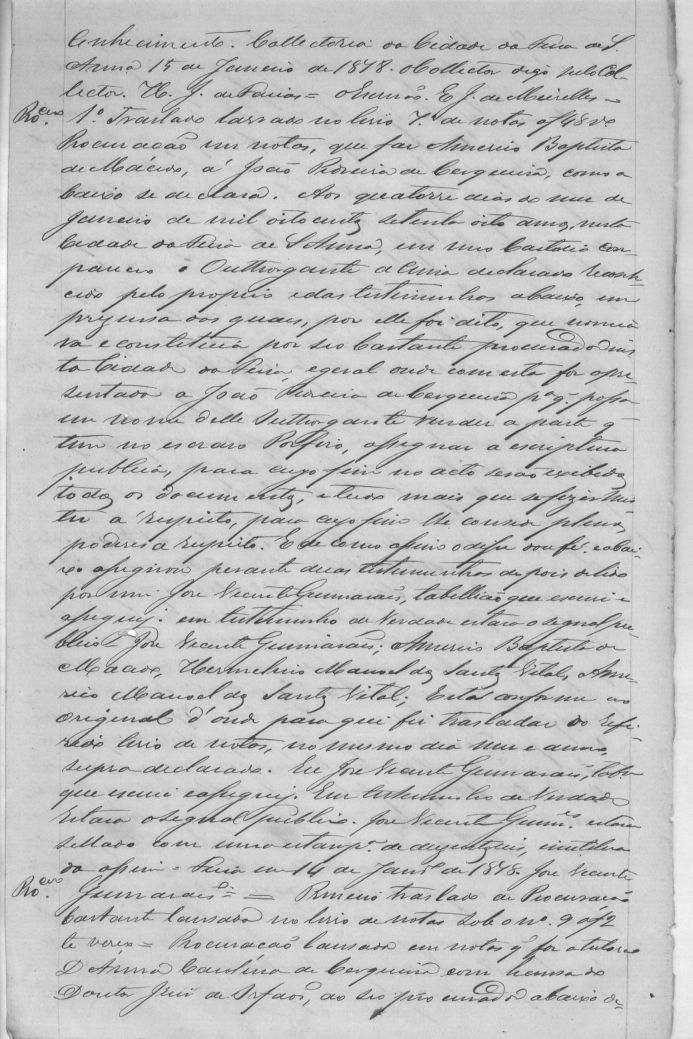 Conhecimento. Collectoria da Cidade da Feira de S.
Anna 15 de Janeiro de 1878. o Collector digo pelo Col-
lector. H. J. de Farias = o Escrivão. E. J. de Meirelles =
Procm. 1º Traslado lavrado no livro 7. de notas af 48 vº
Procuração em notas, que faz Americo Baptista
de Macêdo, á João Pereira de Cerqueira, como a
baixo se declara. Aos quatorze dias do mez de
Janeiro de mil oito centos setenta oito annos, nesta
Cidade da Feira de S Anna, em meo Cartorio com-
pareceo o Outhorgante a cima declarado reconhe-
cido pelo proprio e das testimunhas abaixo, em
prezença das quaes, por elle foi dito, que nomia
va e constituia por seo bastante procurador nes
ta Cidade da Feira, e geral onde com esta for apre-
sentada a João Pereira de Cerqueira pª q. possa
em nome delle Outhorgante vender a parte q
tem no escravo Porfirio, assignar a escriptura
publica, para cujo fim no acto serão exibidos
todos os documentos, e tudo mais que se fizer mis-
ter a respeito, para cujo fim lhe concede plenos
poderes a respeito. E de como assim o disse dou fé. e abai-
xo assignou perante duas testimunhas depois de lido
por mim José Vicente Guimarães, tabellião que escrevi e
assignei. em testimunho de verdade estava o signal pu-
blico José Vicente Guimarães; Americo Baptista de
Macêdo, Hermelino Manoel dos Santos Vital, Ame-
rico Manoel dos Santos Vital; Está conforme ao
original d'onde para qui fiz trasladar do refe-
rido livro de notas, no mesmo dia mez e anno
supra declarado. Eu José Vicente Guimarães, tabm
que escrevi e assignei. Em testimunho de Verdade
estava o signal publico. José Vicente Guimes. estava
sellado com uma estampª. de duzentos reis, inutilisa
da assim = Feira em 14 de Janrº de 1878. José Vicente
Procm. Guimarães = Primeiro traslado de Procuração
bastante lavrada no livro de notas sob o nº. 9 af 2
te verso = Procuração lavrada em notas q faz a tutora
D Anna Carolina de Cerqueira com licença do
Doutor Juiz de Orfaõs, ao seo procurador abaixo de-